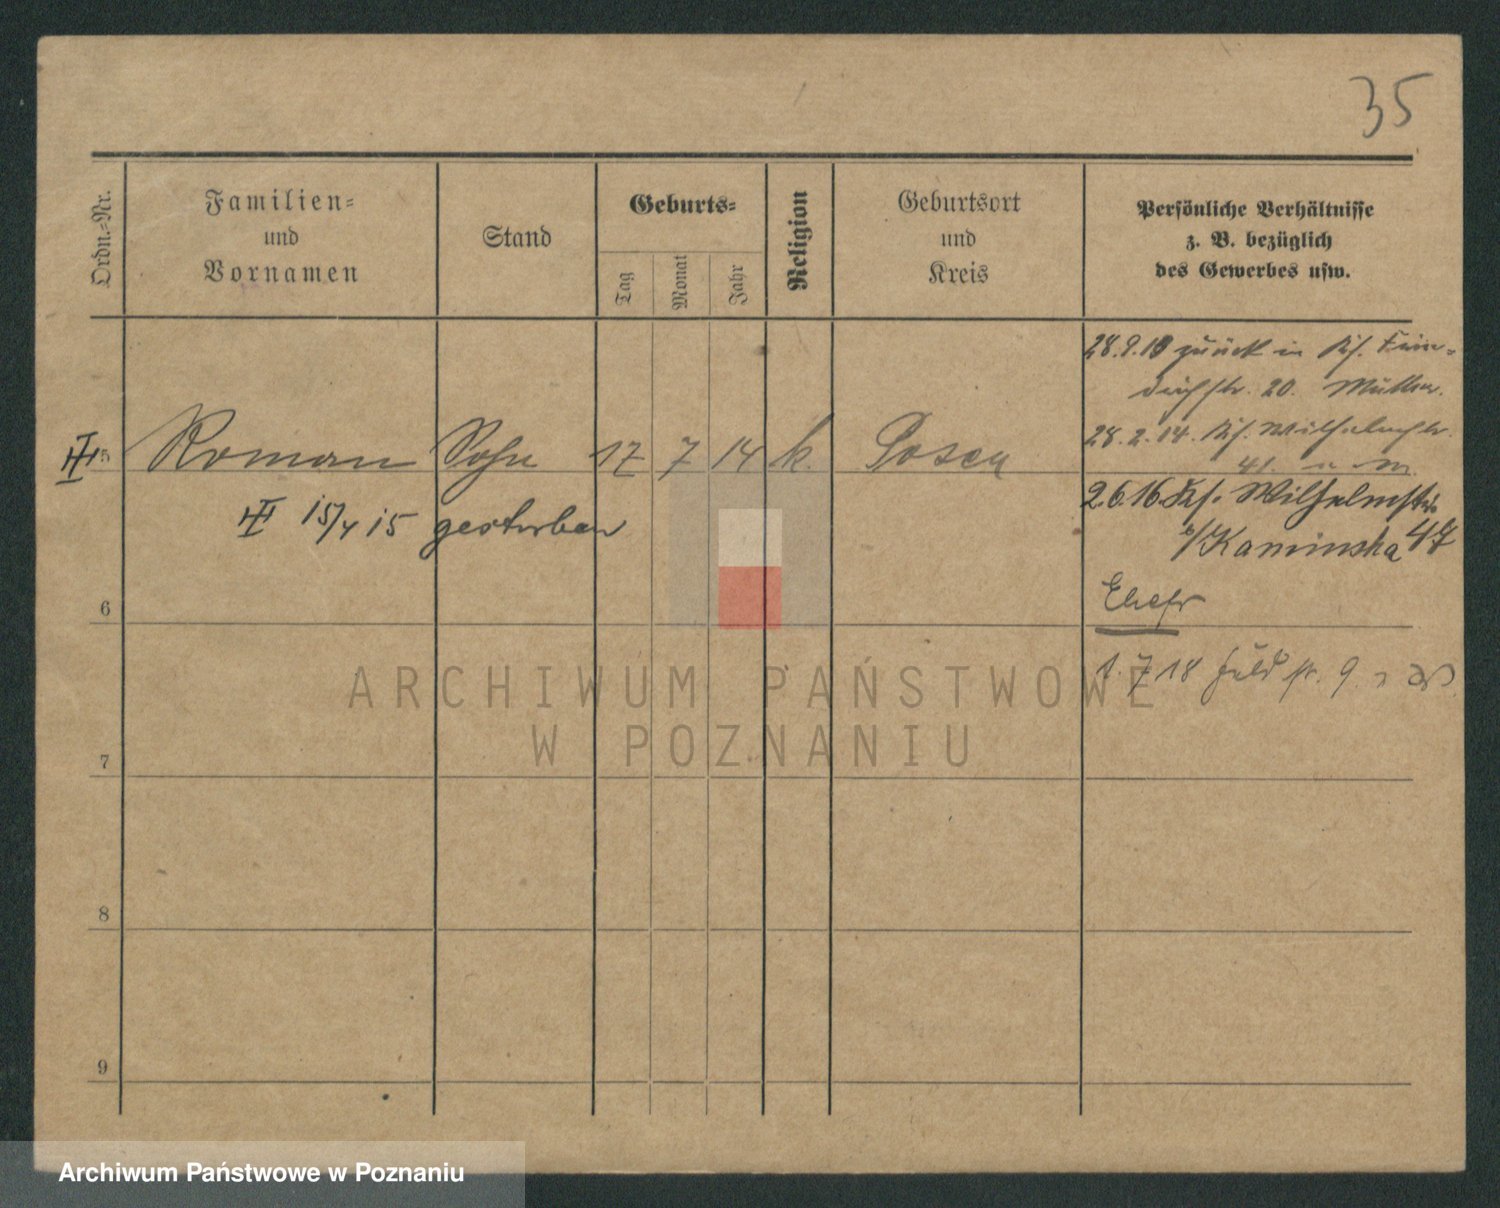 35
Ordn.-Nr.
Familien-
und
Vornamen
Stand
Geburts-
Tag
Monat
Jahr
Religion
Geburtsort
und
Kreis
Persönliche Verhältnisse
z. B. bezüglich
des Gewerbes usw.
28.9.13 zurück in
20. Müller.
5 Roman Sohn 17 7 14 k. Posen
28.2.14. Wilhelmstr.
41.
15/4 15 gestorben
2.6.16. Wilhelmstr.
Kaminska 47
6
Ehefr
1.7.18 Feldstr. 9
7
8
9
ARCHIWUM PAŃSTWOWE
W POZNANIU
Archiwum Państwowe w Poznaniu